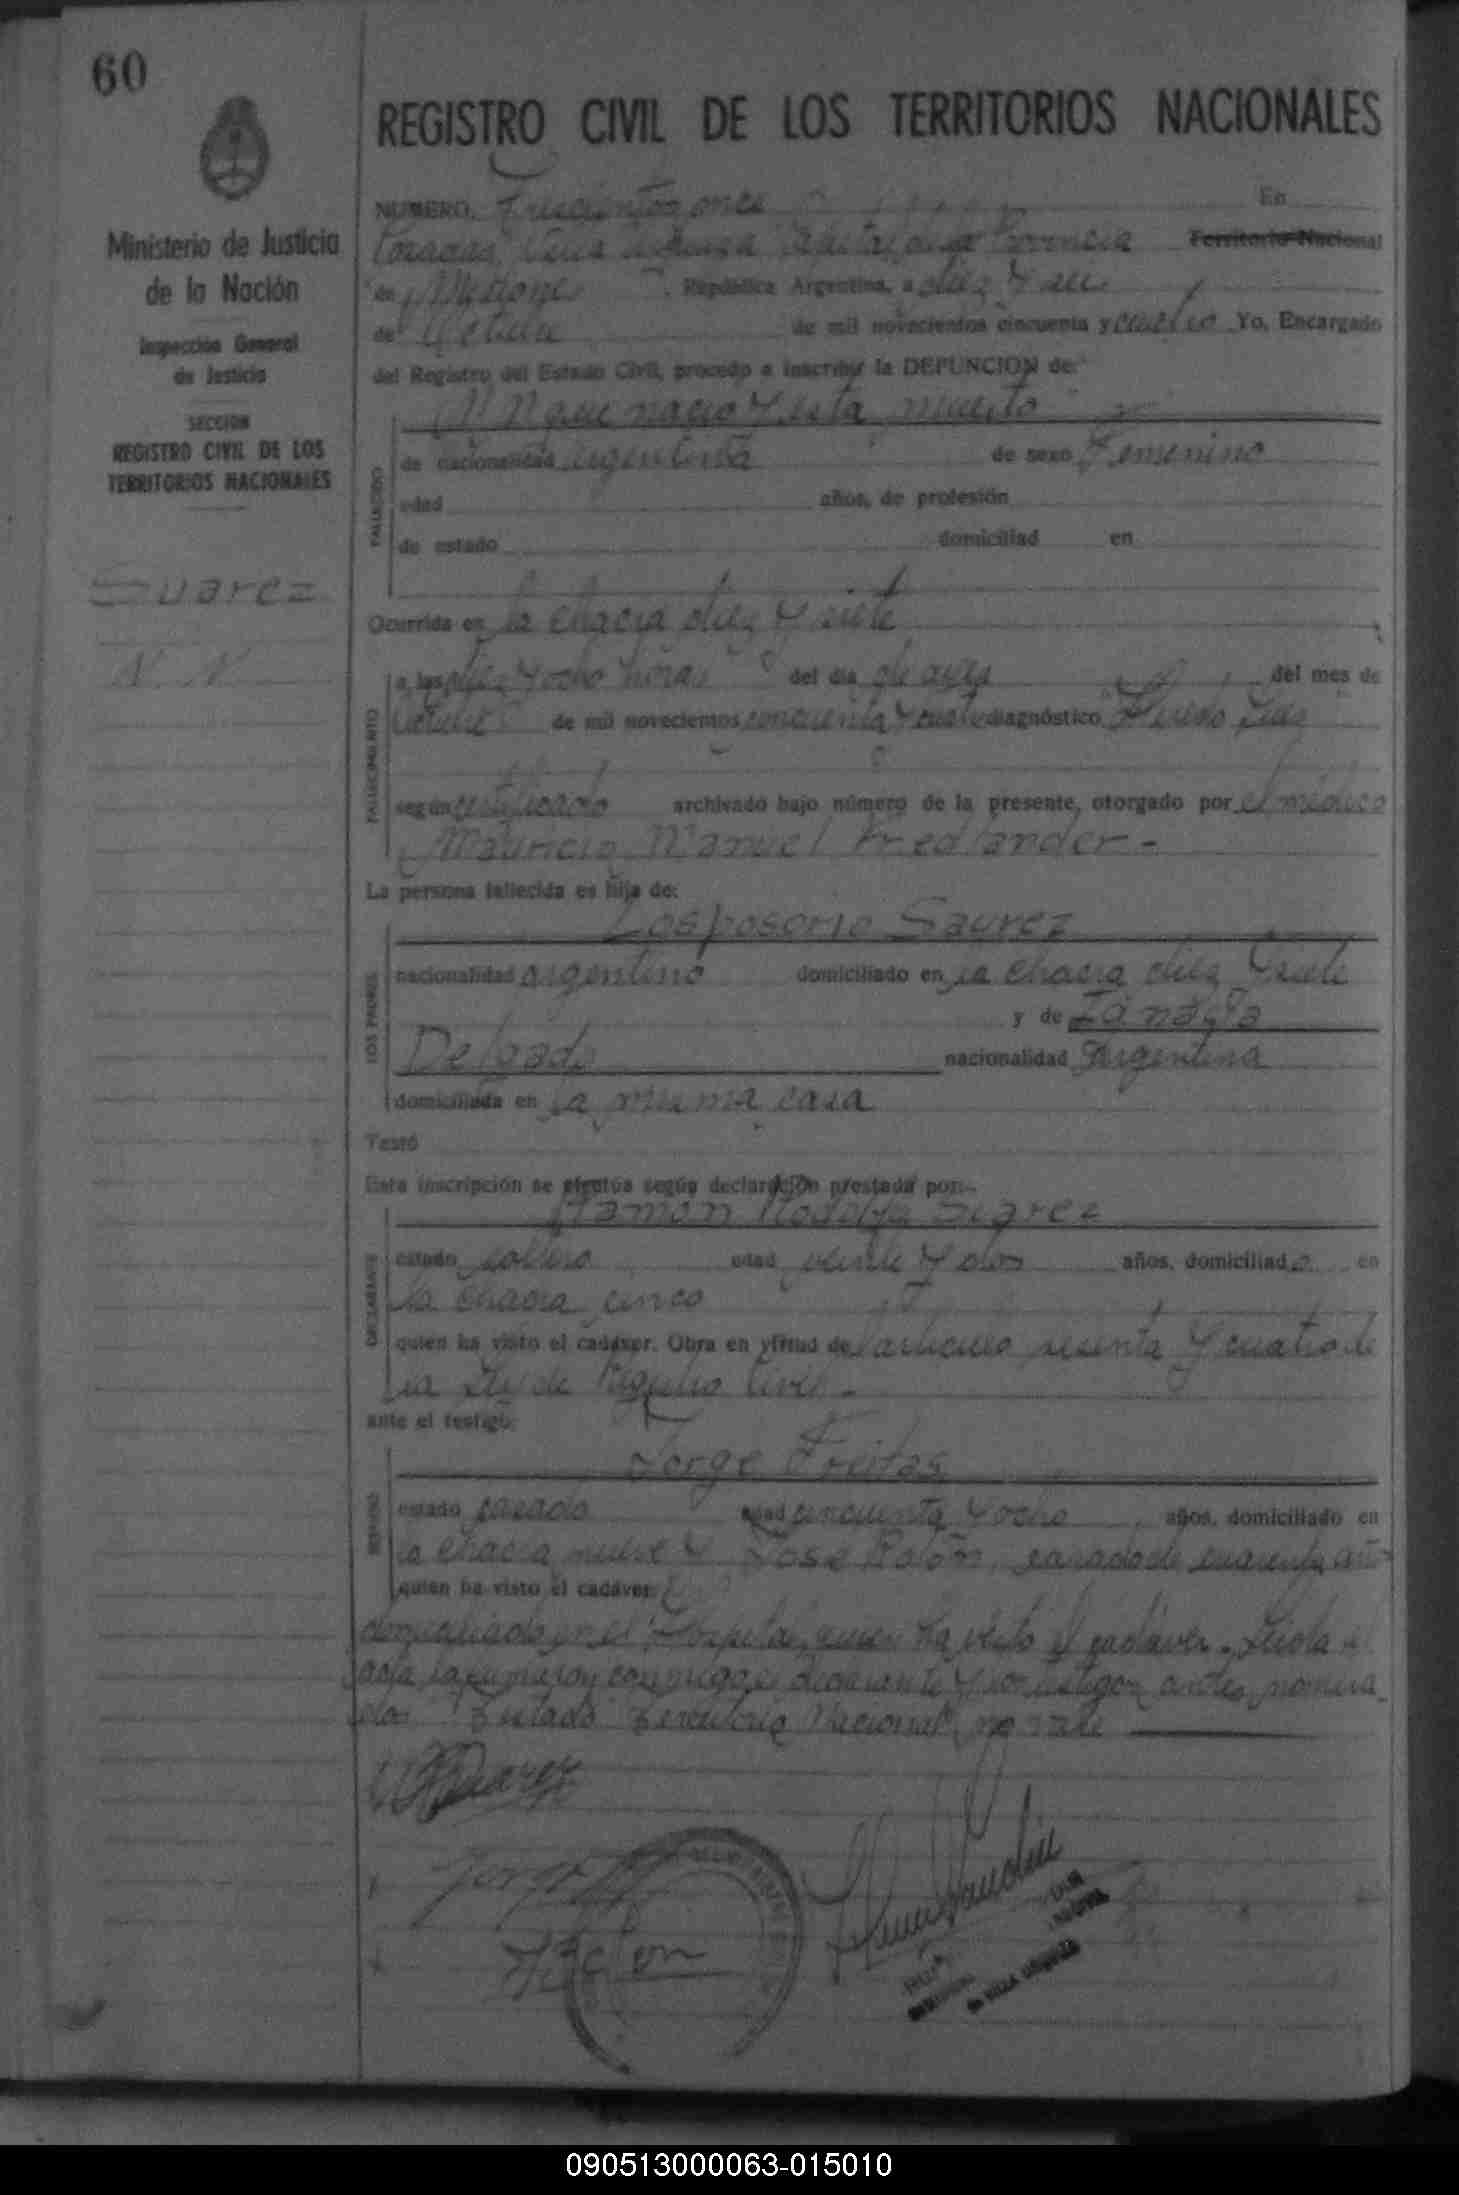 60
REGISTRO CIVIL DE LOS TERRITORIOS NACIONALES
Ministerio de Justicia
de la Nación
Inspección General
de Justicia
SECCION
REGISTRO CIVIL DE LOS
TERRITORIOS NACIONALES
Suarez
N. N.
NUMERO. Trescientos once En
Posadas, Villa Urquiza Capital de la Provincia Territorio Nacional
de Misiones, República Argentina, a diez y seis
de Octubre de mil novecientos cincuenta y cuatro Yo, Encargado
del Registro del Estado Civil, procedo a inscribir la DEFUNCION de:
N N que nacio y esta muerto
FALLECIDO
de nacionalidad argentina de sexo Femenino
edad años, de profesión
de estado domiciliad en
Ocurrida en la chacra diez y siete
FALLECIMIENTO
a las diez y ocho horas del dia de ayer del mes de
Octubre de mil novecientos cincuenta y cuatro diagnóstico
según certificado archivado bajo número de la presente, otorgado por el médico
Mauricio Manuel Fredlander -
La persona fallecida es hija de:
Losposorio Saurez
LOS PADRES
nacionalidad argentino domiciliado en la chacra diez y siete
y de
Delgado nacionalidad Argentina
domiciliada en la misma casa
Testó
Esta inscripción se efectúa según declaración prestada por:-
Ramon Rodolfo Suarez
DECLARANTE
estado soltero edad veinte y dos años, domiciliado en
la chacra cinco
quien ha visto el cadáver. Obra en virtud del articulo sesenta y cuatro de
la Ley de Registro Civil -
ante el testigo:
Jorge Freitas
TESTIGO
estado casado edad cincuenta y ocho años, domiciliado en
la chacra nueve y José Rolón, casado de cuarenta años
quien ha visto el cadáver
domiciliado en el Hospital, quien ha visto el cadaver. Leida el
acta la firmaron conmigo el declarante y los testigos antes nomina-
dos Testado Territorio Nacional no vale
Suarez
Jorge
Rolon
090513000063-015010